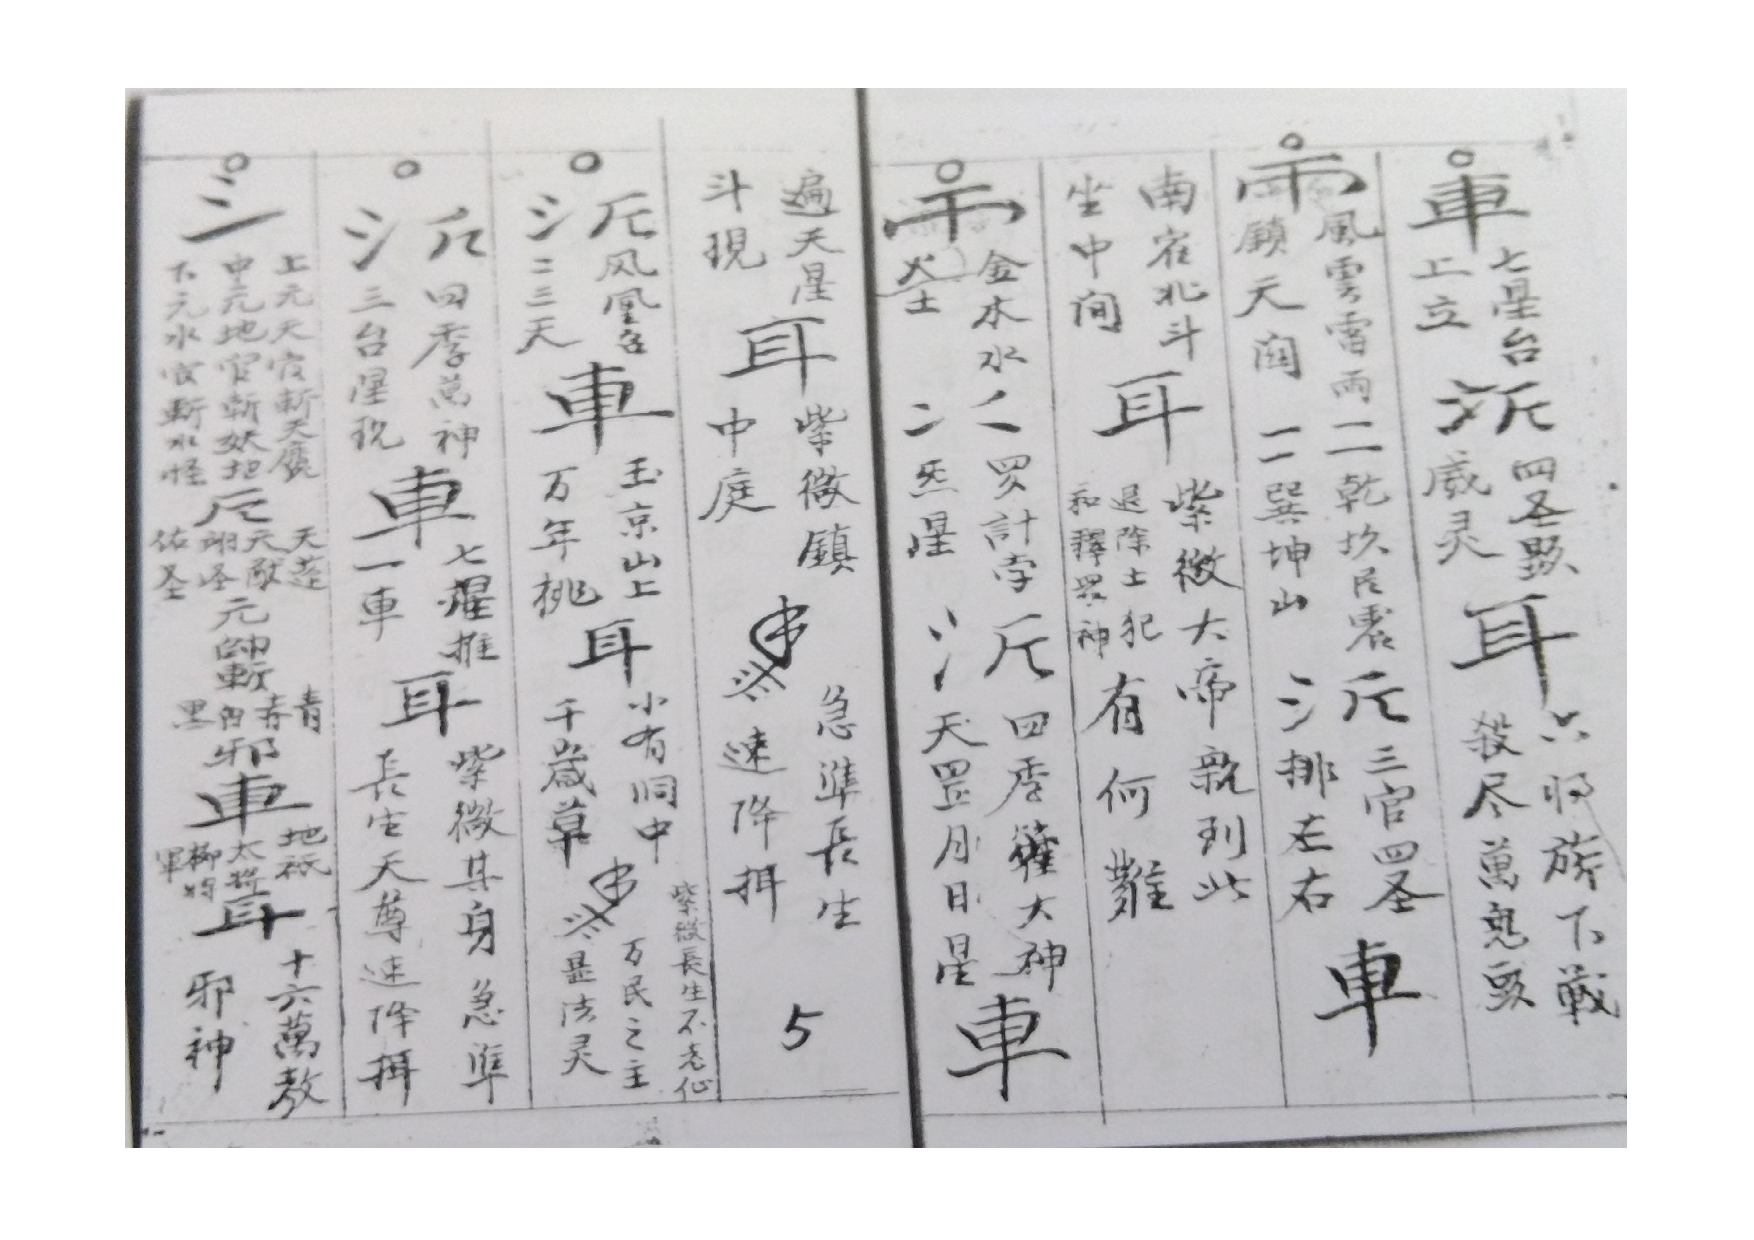 車 七星台上立 𣲖 四圣顕威灵 耳 六将旗下戰 殺尽萬鬼
雨 風雲雷雨鎮天 二 乾坎艮震 二 巽坤山 斤 三官四圣 氵 排左右 車
南宿北斗坐中间 耳 紫微大帝親到此 退除土犯和釋眾神 有何難
金木水火土 罗計孛炁星 斤 四季 大神 氵 天罡月日星 車
遍天星斗現 耳 紫微鎮中庭 急準長生速降 5
斤 风凰 氵 二三天 車 玉京山上万年桃 耳 小有洞中千歲草 紫微長生不老仙 万民之主显法灵
斤 四季萬神 氵 三台星現 車 七耀推一車 耳 紫微其身長生天尊 急準速降
三 上元天官斬天 中元地官斬妖 下元水官斬水怪 斤 天蓬 天猷 翊圣 佑圣 元帥斬 青赤白黑 邪 車 地祇太 柳将軍 耳 十六萬 邪神